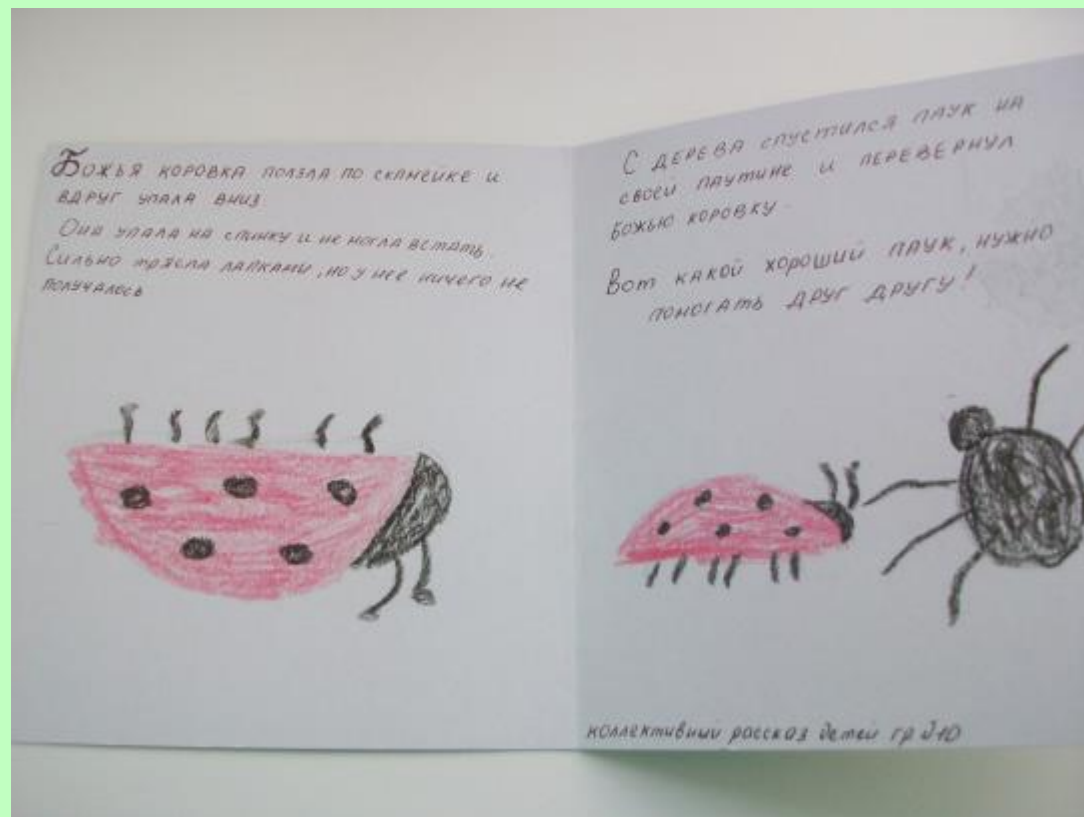 Божья коровка ползла по скамейке и
вдруг упала вниз.
Она упала на спинку и не могла встать.
Сильно трясла лапками, но у нее ничего не
получалось
С дерева спустился паук на
своей паутине и перевернул
божью коровку.
Вот какой хороший паук, нужно
помогать друг другу!
коллективный рассказ детей гр